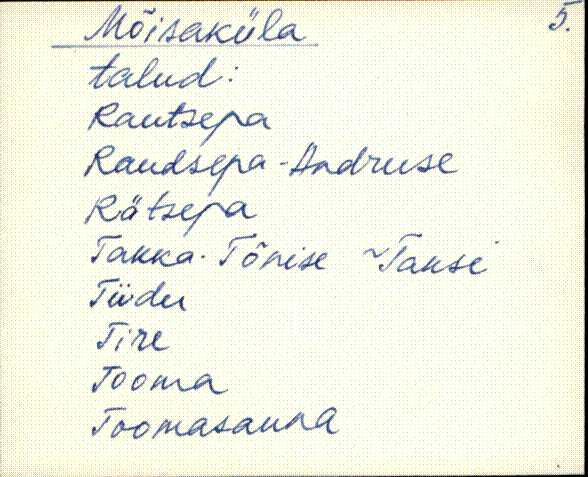 Mõisaküla 5.
talud:
Rautsepa
Raudsepa-Andruse
Rätsepa
Takka-Tõnise ~ Taksi
Tiidu
Tire
Tooma
Toomasauna